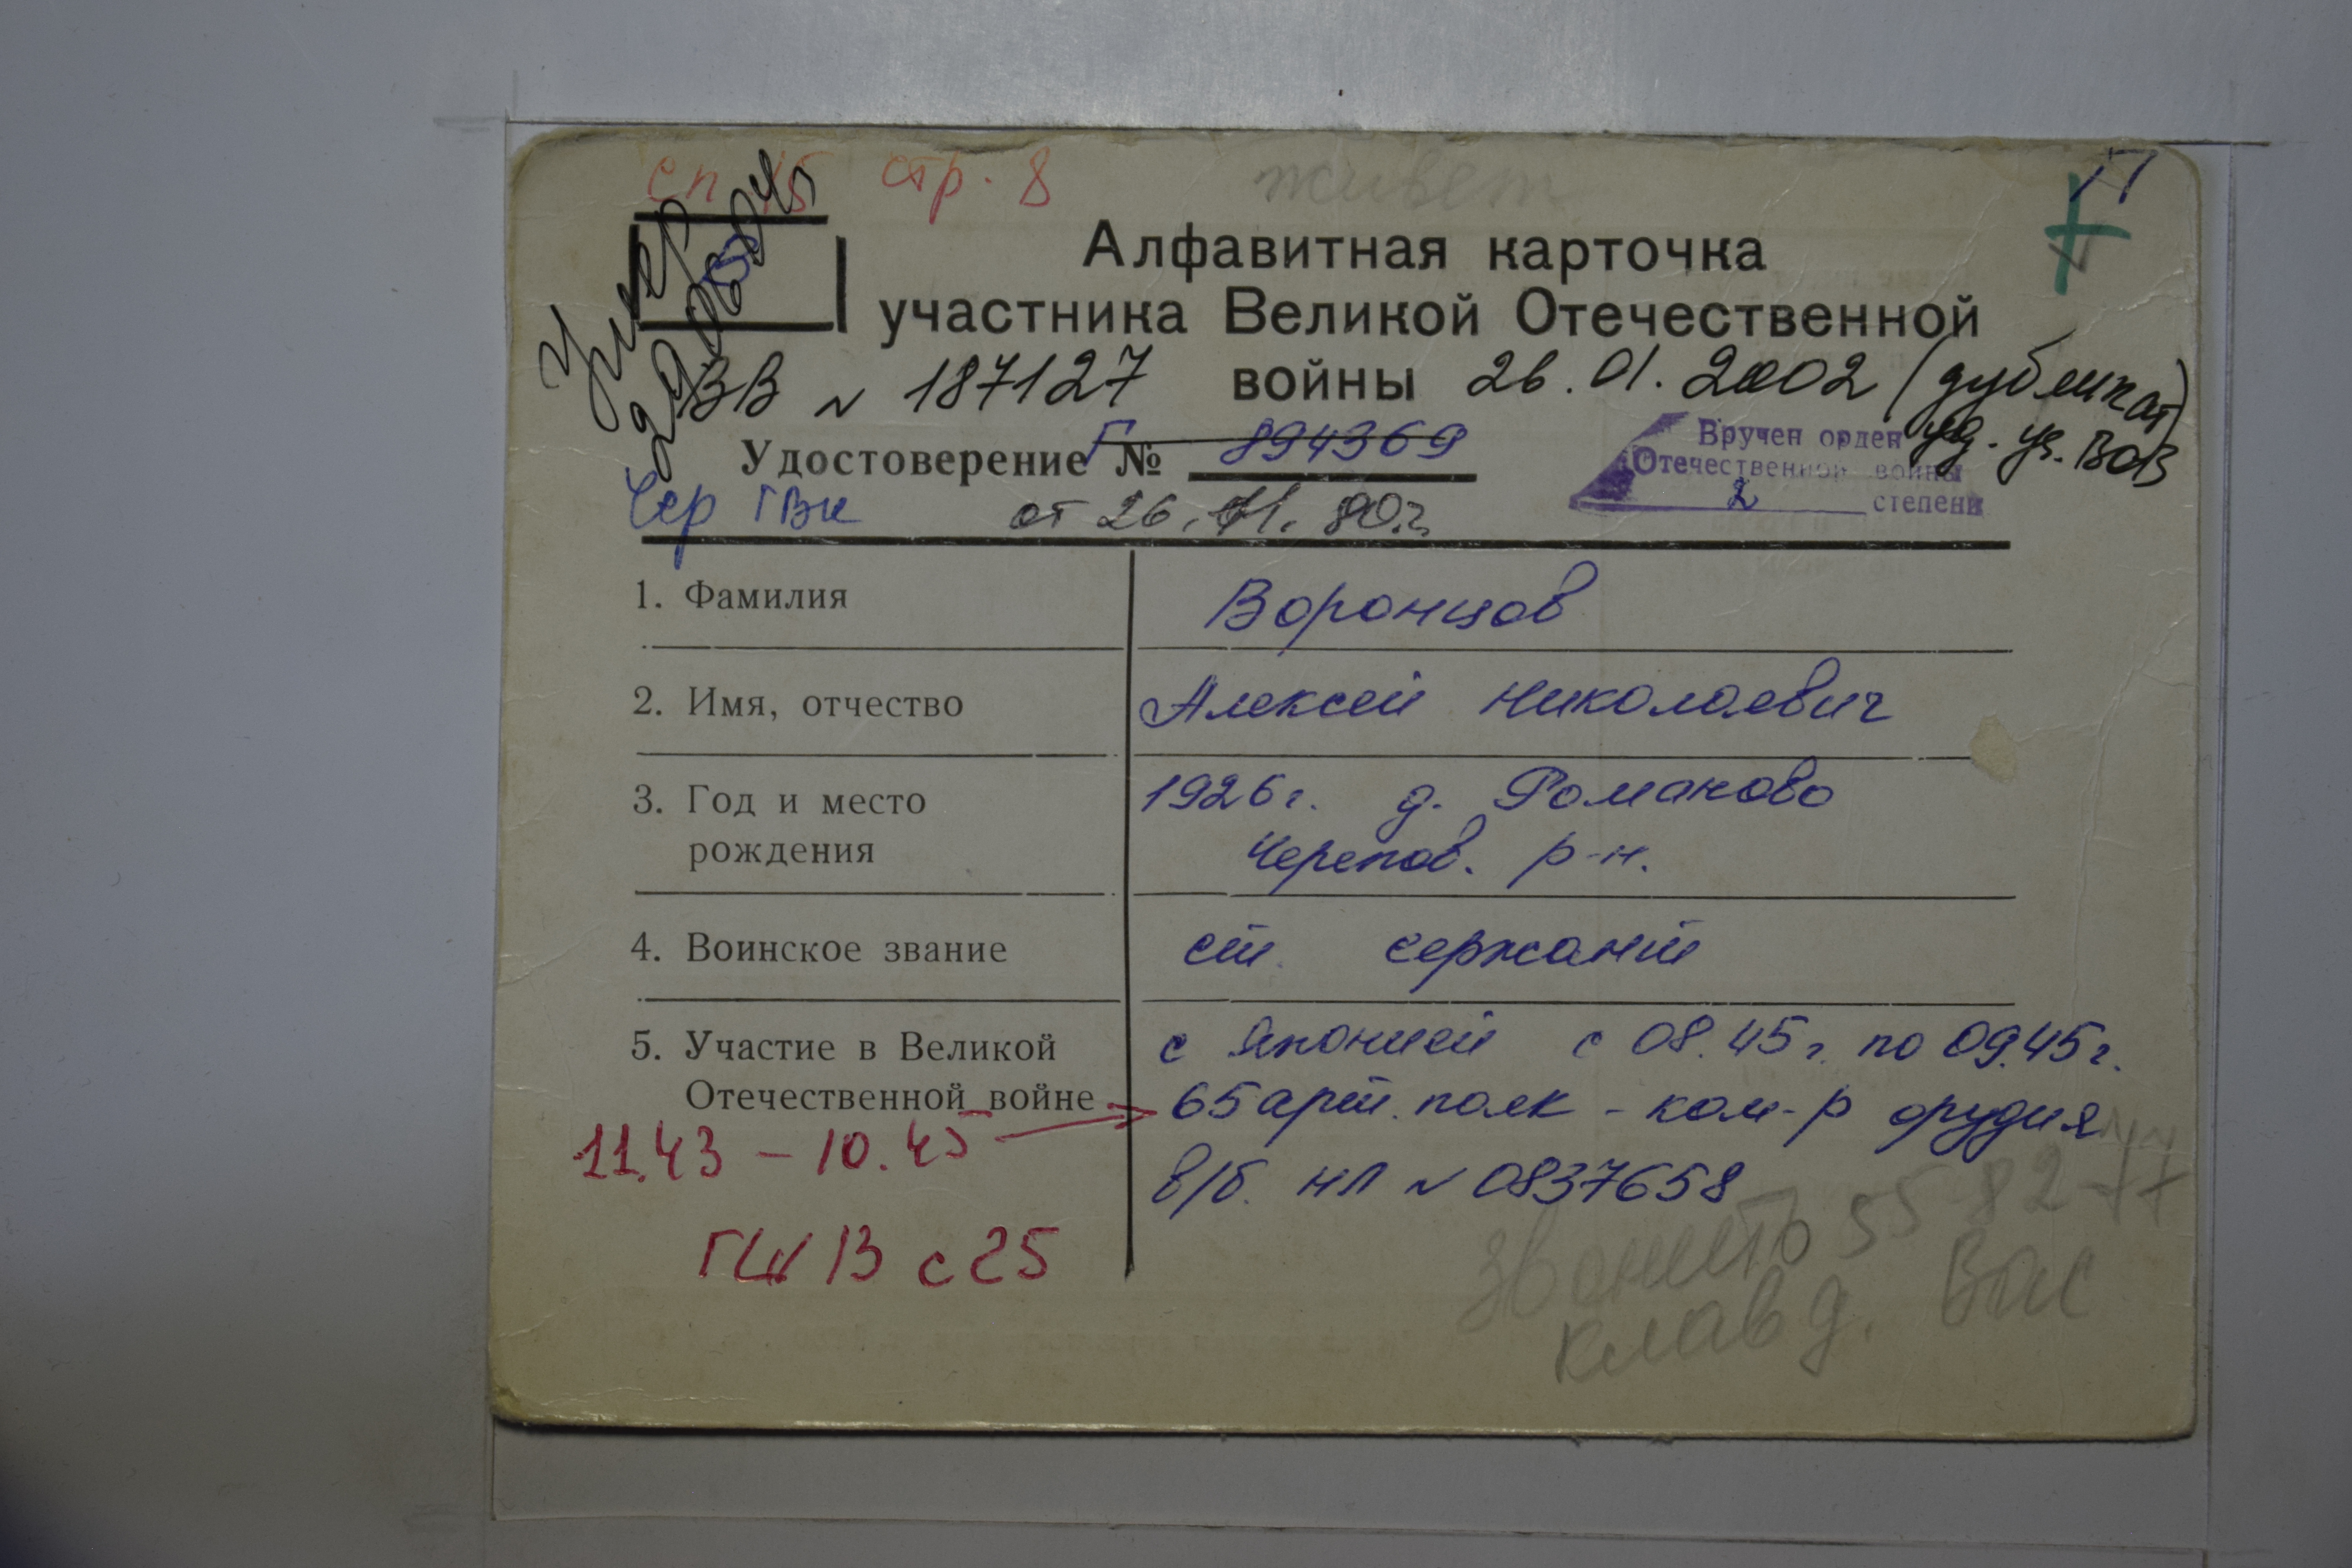 сп 15 стр. 8 живет
Умер
Алфавитная карточка
участника Великой Отечественной
войны
ВВ N 187127 26.01.2002 (дубликат)
уд. уч. ВОВ
Удостоверение Г № 894369
Вручен орден
Отечественной войны
2 степени
Чер ГВК от 26.11.80г.
1. Фамилия Воронцов
2. Имя, отчество Алексей Николаевич
3. Год и место рождения 1926г. д. Романово
Черепов. р-н.
4. Воинское звание ст. сержант
5. Участие в Великой Отечественной войне с Японией с 08.45г. по 09.45г.
65 арт. полк - ком-р орудия
11.43 – 10.45
в/б. НЛ N 0837658
13 с 25
звонить 55 82 77
клавд. Вас